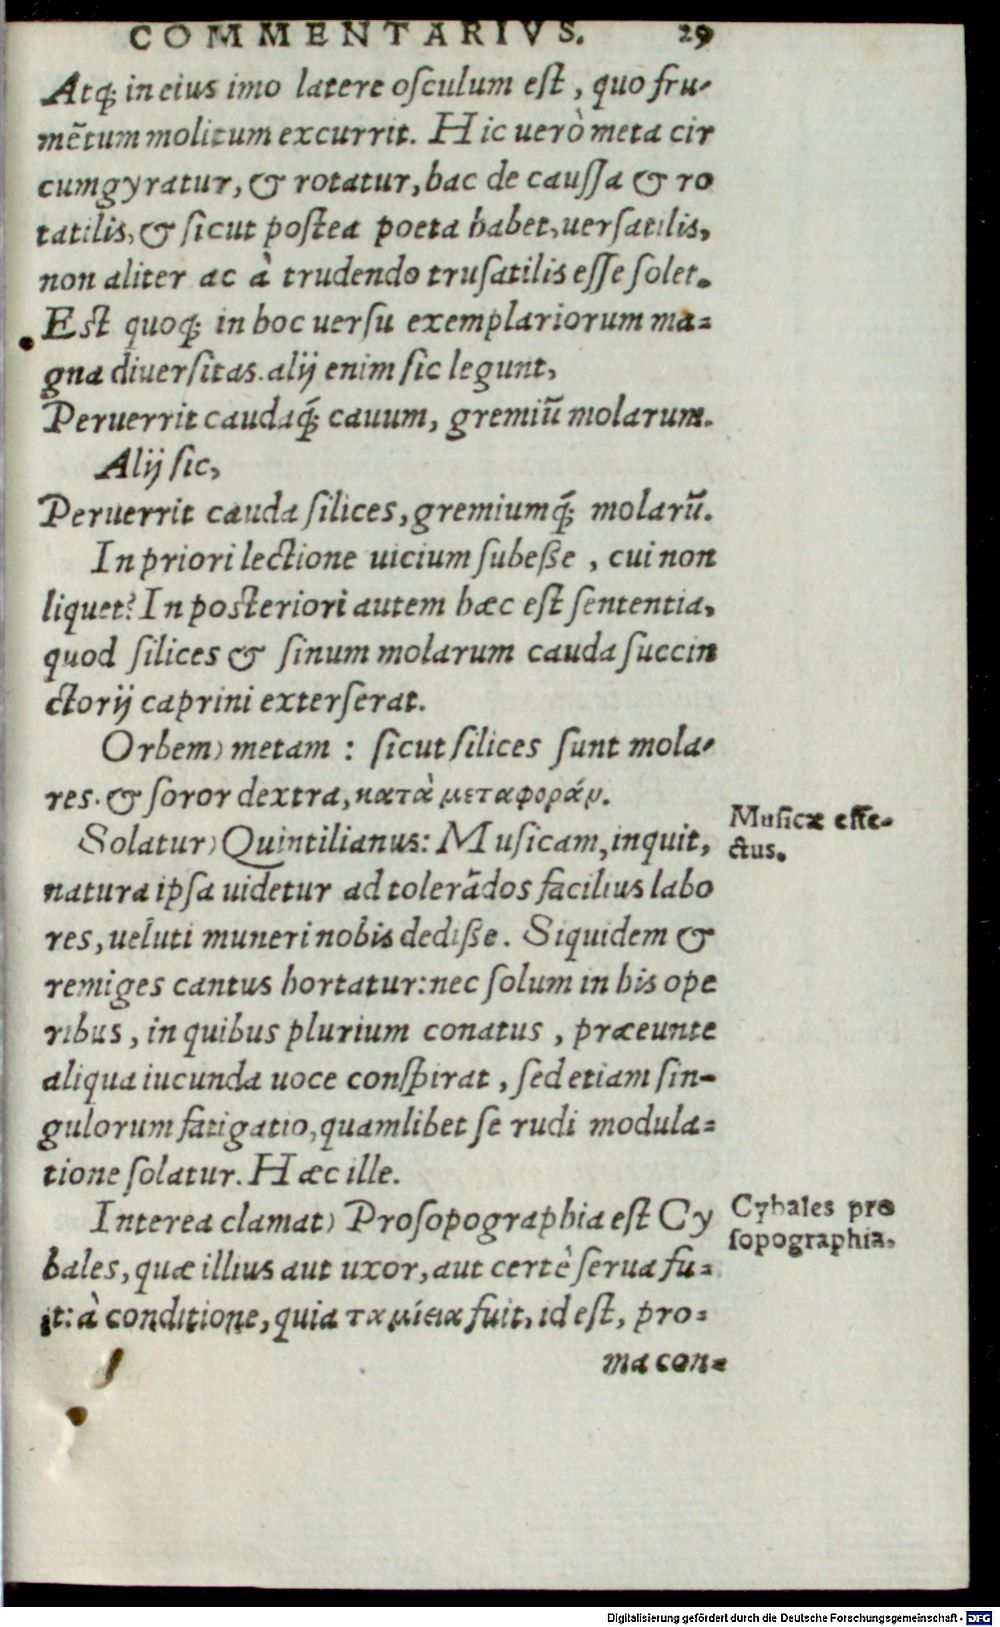 COMMENTARIVS. 29
Atq; in eius imo latere oſculum eſt, quo fru-
mẽtum molitum excurrit. Hic uerò meta cir
cumgyratur, & rotatur, hac de cauſſa & ro
tatilis, & ſicut poſtea poeta habet, uerſatilis,
non aliter ac à trudendo truſatilis eſſe ſolet.
Eſt quoq; in hoc uerſu exemplariorum ma-
gna diuerſitas. alij enim ſic legunt,
Peruerrit caudaq́; cauum, gremiũ molarum.
Alij ſic,
Peruerrit cauda ſilices, gremiumq́; molarũ.
In priori lectione uicium ſubeße, cui non
liquet? In poſteriori autem hæc eſt ſententia,
quod ſilices & ſinum molarum cauda ſuccin
ctorij caprini exterſerat.
Orbem) metam: ſicut ſilices ſunt mola-
res. & ſoror dextra, κατὰ μεταφοράν.
Solatur) Quintilianus: Muſicam, inquit,
natura ipſa uidetur ad tolerãdos facilius labo
res, ueluti muneri nobis dediße. Siquidem &
remiges cantus hortatur: nec ſolum in his ope
ribus, in quibus plurium conatus, præeunte
aliqua iucunda uoce conſpirat, ſed etiam ſin-
gulorum fatigatio, quamlibet ſe rudi modula-
tione ſolatur. Hæc ille.
Interea clamat) Proſopographia eſt Cy
bales, quæ illius aut uxor, aut certè ſerua fu-
it: à conditione, quia ταμίεια fuit, id eſt, pro-
ma con-
Muſicæ effe-
ctus.
Cybales pro
ſopographia.
Digitalisierung gefördert durch die Deutsche Forschungsgemeinschaft - DFG